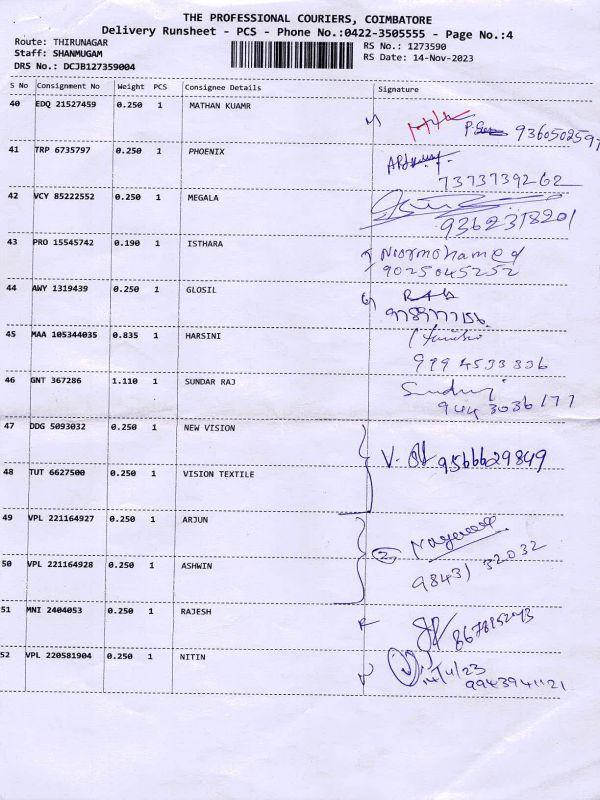 THE PROFESSIONAL COURIERS, COIMBATORE
Delivery Runsheet - PCS - Phone No.:0422-3505555 - Page No.:4
Route: THIRUNAGAR
Staff: SHANMUGAM
DRS No.: DCJB127359004
RS No.: 1273590
RS Date: 14-Nov-2023
S No Consignment No Weight PCS Consignee Details Signature
40 EDQ 21527459 0.250 1 MATHAN KUAMR
41 TRP 6735797 0.250 1 PHOENIX
7373739262
42 VCY 85222552 0.250 1 MEGALA
9362318201
43 PRO 15545742 0.190 1 ISTHARA
Noormohamed
9025045252
44 AWY 1319439 0.250 1 GLOSIL
45 MAA 105344035 0.835 1 HARSINI
9994533836
46 GNT 367286 1.110 1 SUNDAR RAJ
9443036177
47 DDG 5093032 0.250 1 NEW VISION
9566629849
48 TUT 6627500 0.250 1 VISION TEXTILE
49 VPL 221164927 0.250 1 ARJUN
50 VPL 221164928 0.250 1 ASHWIN
98431 32032
51 MNI 2404053 0.250 1 RAJESH
52 VPL 220581904 0.250 1 NITIN
14/11/23
9943941121